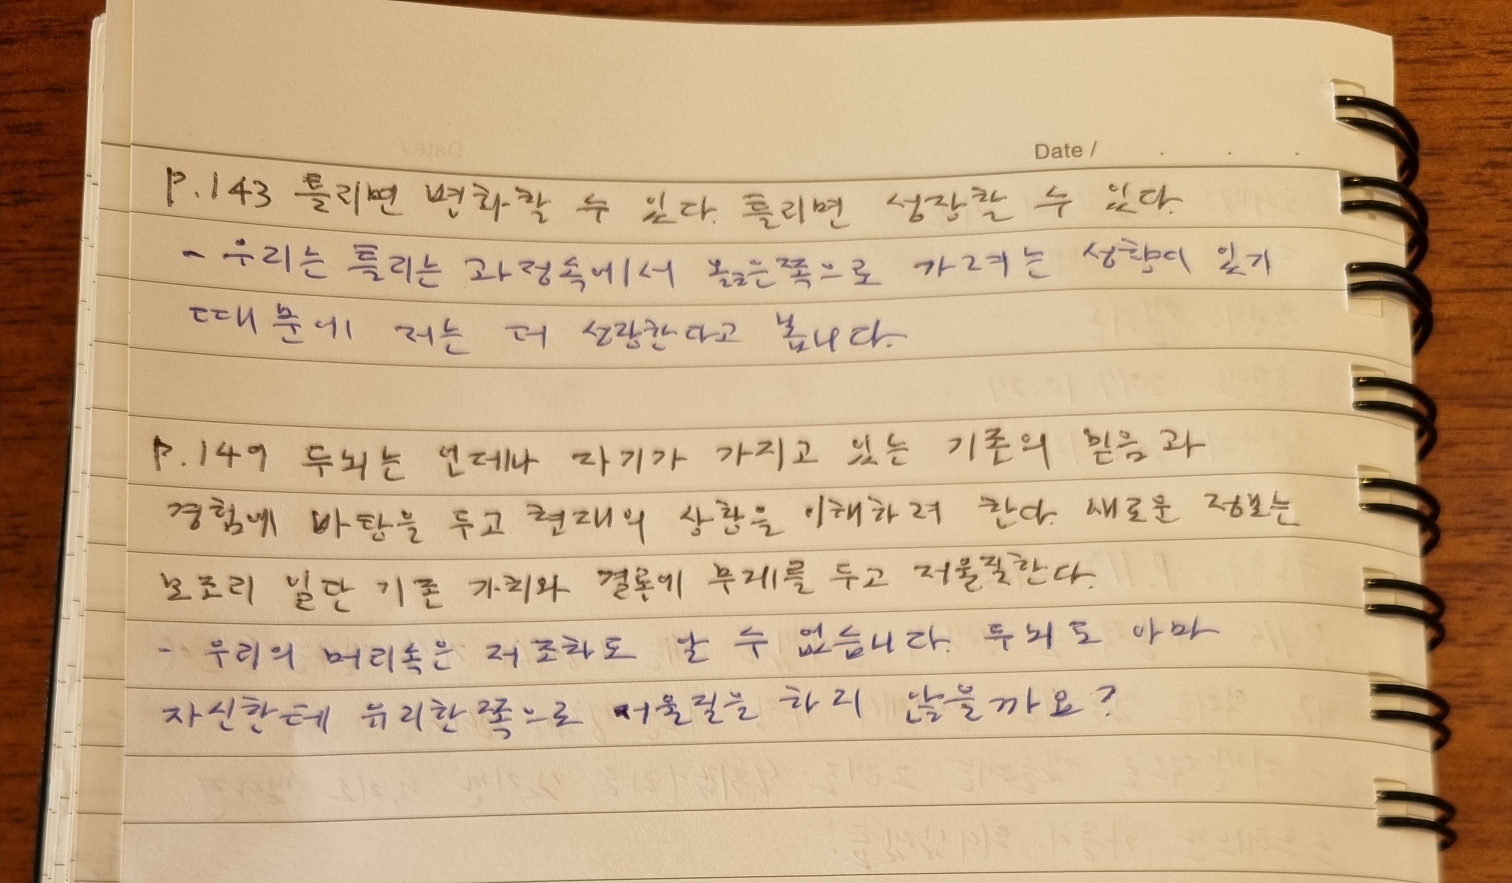 Date /
p.143 틀리면 변화할 수 있다. 틀리면 성장할 수 있다.
- 우리는 틀리는 과정속에서 옳은쪽으로 가려는 성향이 있기
때문에 저는 더 성장한다고 봅니다.
p.149 두뇌는 언제나 자기가 가지고 있는 기존의 믿음과
경험에 바탕을 두고 현재의 상황을 이해하려 한다. 새로운 정보는
모조리 일단 기존 가치와 결론에 무게를 두고 저울질한다.
- 우리의 머리속은 저조차도 알 수 없습니다. 두뇌도 아마
자신한테 유리한쪽으로 저울질을 하리 않을까요?